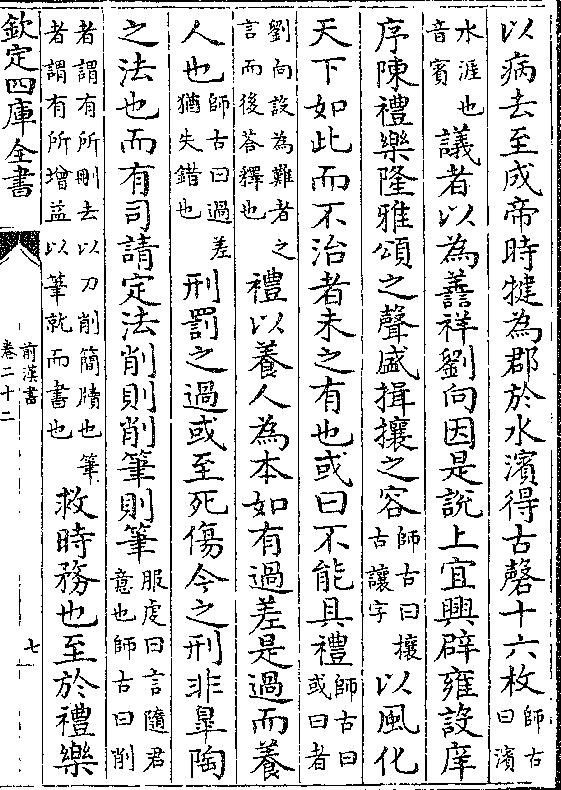 以病去至成帝時犍為郡於水濱得古磬十六枚師古曰濱
水涯也音賓議者以為善祥劉向因是說上宜興辟雍設庠
序陳禮樂隆雅頌之聲盛揖攘之容師古曰攘古讓字以風化
天下如此而不治者未之有也或曰不能具禮師古曰或曰者
劉向設為難者之言而後答釋也禮以養人為本如有過差是過而養
人也師古曰過差猶失錯也刑罰之過或至死傷今之刑非臯陶
之法也而有司請定法削則削筆則筆服虔曰言隨君意也師古曰削
者謂有所刪去以刀削簡牘也筆者謂有所增益以筆就而書也救時務也至於禮樂
欽定四庫全書
前漢書
卷二十二
七